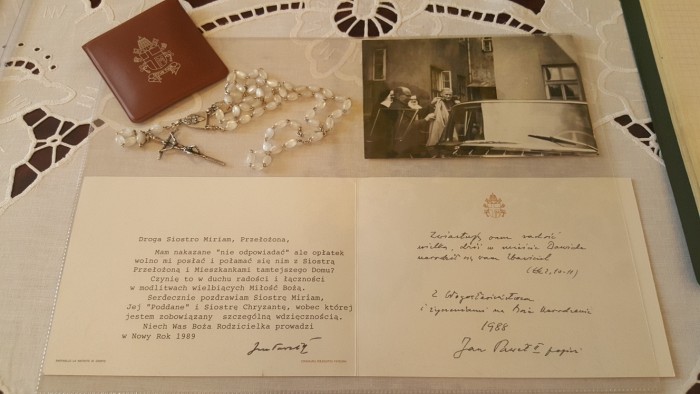 Droga Siostro Miriam, Przełożona,
Mam nakazane "nie odpowiadać" ale opłatek
wolno mi posłać i połamać się nim z Siostrą
Przełożoną i Mieszkankami tamtejszego Domu?
Czynię to w duchu radości i łączności
w modlitwach wielbiących Miłość Bożą.
Serdecznie pozdrawiam Siostrę Miriam,
Jej "Poddane" i Siostrę Chryzantę, wobec której
jestem zobowiązany szczególną wdzięcznością.
Niech Was Boża Rodzicielka prowadzi
w Nowy Rok 1989
Zwiastuję wam radość
wielką, dziś w mieście Dawida
narodził się wam Zbawiciel
(Łk 2, 10-11)
Z błogosławieństwem
i życzeniami na Boże Narodzenie
1988
Jan Paweł II papież